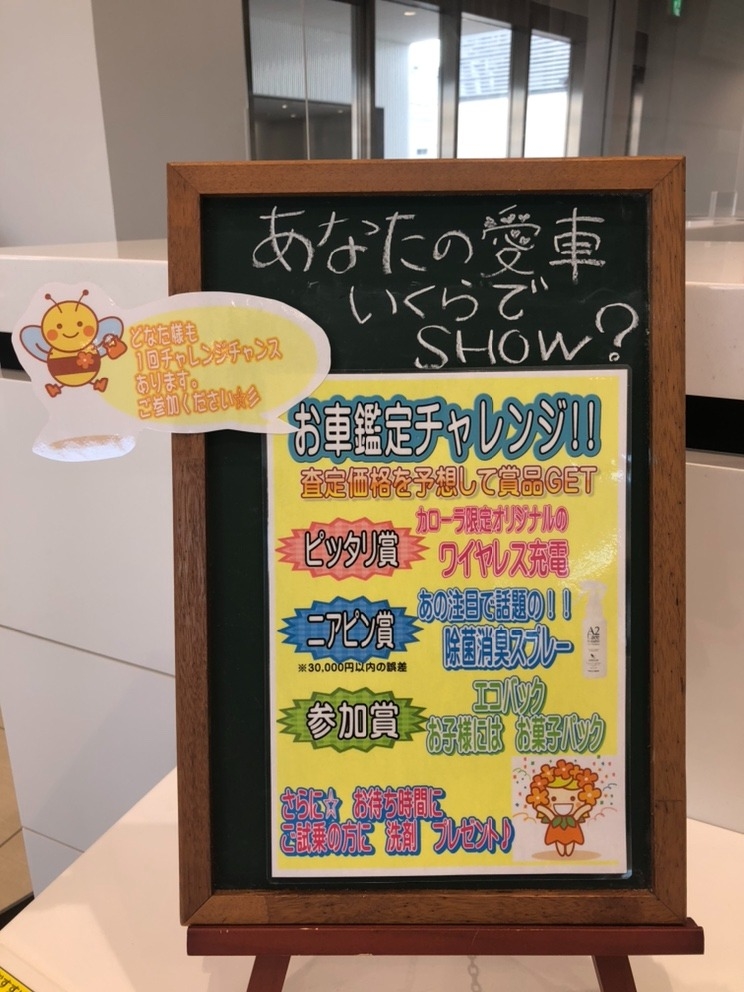 あなたの愛車
いくらで
SHOW?
どなた様も
1回チャレンジチャンス
あります。
ご参加ください☆彡
お車鑑定チャレンジ!!
査定価格を予想して賞品GET
ピッタリ賞
カローラ限定オリジナルの
ワイヤレス充電
ニアピン賞
※30,000円以内の誤差
あの注目で話題の!!
除菌消臭スプレー
A2
参加賞
エコバック
お子様には お菓子パック
さらに☆ お待ち時間に
ご試乗の方に 洗剤 プレゼント♪